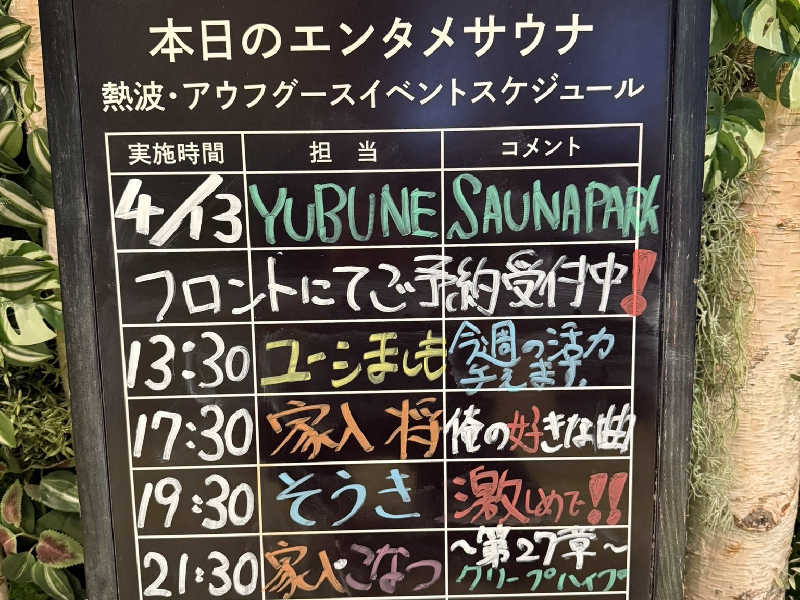 本日のエンタメサウナ
熱波・アウフグースイベントスケジュール
実施時間 担当 コメント
4/13 YUBUNE SAUNAPARK
フロントにてご予約受付中!
13:30 ユーシましも 今週の活力
与えます。
17:30 家入 将 俺の好きな曲
19:30 そうき 激しめで!!
21:30 家入こなつ ~第27章~
クリープハイプ